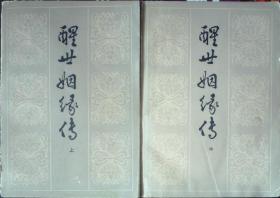 醒世姻缘传
上
醒世姻缘传
中